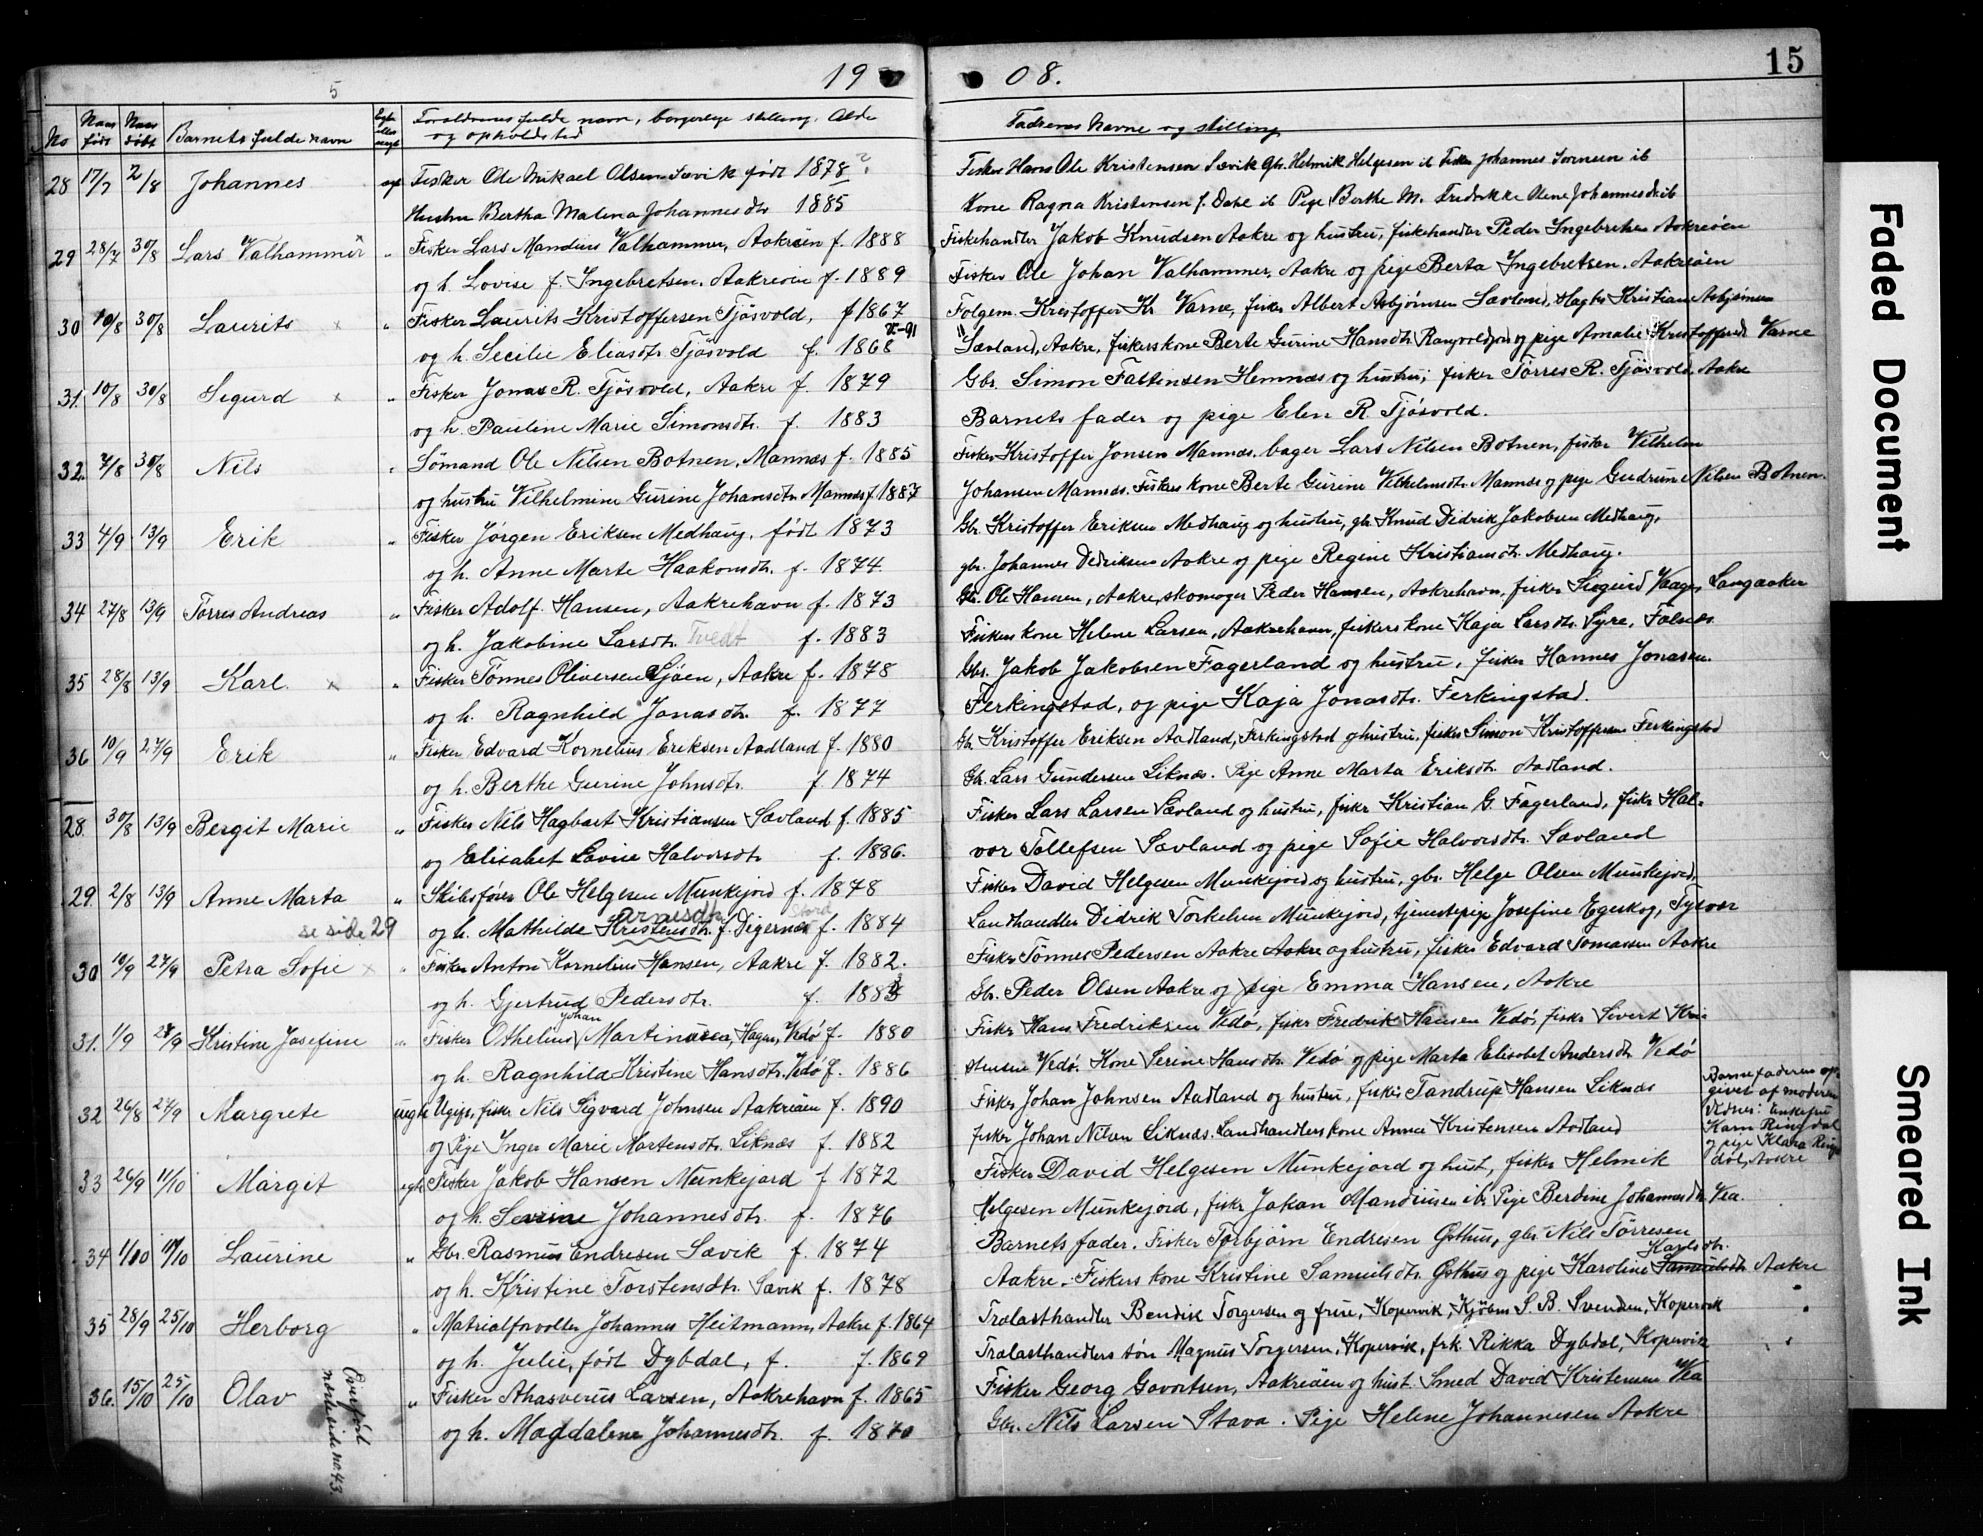 15
5
1908.
No
Naar født
Naar døbt
Barnets fulde navn
Egte eller uegte
Forældrenes fulde navn, borgerlige stilling, Alder og opholdsted
Faderes Navne og stilling
28 17/7 2/8 Johannes egt Fisker Ole Mikael Olsen Sævik født 1878? Fisker Hans Ole Kristensen Sævik Gbr. Helmik Helgesen ib Fisker Johannes Sørensen ib
Hustru Bertha Malena Johannesdtr 1885 Kone Ragna Kristensen f. Dahl ib Pige Berthe M. Fredrikke Olene Johannesdtr ib
29 28/7 30/8 Lars Valhammer x " Fisker Lars Mandius Valhammer, Aakreøen f. 1888 Fiskehandler Jakob Knudsen Aakre og hustru, fiskehandler Peder Ingebretsen Aakreøen
og h. Lovise f. Ingebretsen. Aakreøen f. 1889 Fisker Ole Johan Valhammer, Aakre og pige Berta Ingebretsen. Aakreøen
30 10/8 30/8 Laurits x " Fisker Laurits Kristoffersen Tjøsvold, f 1867 Folgem. Kristoffer Kr. Varne, fisker Albert Asbjørnsen Sævland, Hagbr Kristian Asbjørnsen
og h. Secilie Eliasdtr Tjøsvold f. 1868 Sævland, Aakre, fiskerskone Berte Gurine Hansdtr og pige Amalie Kristoffersdtr Varne
31. 10/8 30/8 Sigurd x " Fisker Jonas R. Tjøsvold, Aakre f. 1879 Gbr. Simon Fastensen Hemnæs og hustru; fisker Tørres R. Tjøsvold, Aakre
og h. Pauline Marie Simonsdtr. f. 1883 Barnets fader og pige Elen R. Tjøsvold.
32. 7/8 30/8 Nils " Sømand Ole Nilsen Botnen, Mannæs f. 1885 Fisker Kristoffer Jonsen Mannæs. bager Lars Nilsen Botnen, fisker Vilhelm
og hustru Vilhelmine Gurine Johansdtr. Mannæs f. 1887 Johansen Mannæs. Fiskers kone Berte Gurine Vilhelmsdtr Mannæs og pige Gudrun Nilsen Botnen.
33 4/9 13/9 Erik " Fisker Jørgen Eriksen Medhaug, født 1873 Gbr. Kristoffer Eriksen Medhaug og hustru, gbr Knud Didrik Jakobsen Medhaug,
og h. Anne Marte Haakonsdtr. f. 1874 gbr. Johannes Dedriksen Aakre og pige Regine Kristiansdtr. Medhaug.
34 27/8 13/9 Tørres Andreas " Fisker Adolf Hansen, Aakrehavn f. 1873 Gbr. Ole Hansen, Aakre, skomager Peder Hansen, Aakrehavn, fisker Sigurd Vaage, Langaaker
og h. Jakobine Larsdtr. Tvedt f. 1883 Fiskers kone Helene Larsen, Aakrehavn, fiskers kone Kaja Larsdtr. Syre, Falnæs.
35 28/8 13/9 Karl x " Fisker Tønnes Oliversen Sjøen, Aakre f. 1878 Gbr. Jakob Jakobsen Fagerland og hustru, fisker Hannes Jonasen.
og h. Ragnhild Jonasdtr. f. 1877 Ferkingstad, og pige Kaja Jonasdtr. Ferkingstad.
36 10/9 27/9 Erik " Fisker Edvard Kornelius Eriksen Aadland f. 1880 Gbr Kristoffer Eriksen Aadland, Ferkingstad og hustru, fisker Simon Kristoffersen Ferkingstad
og h. Berthe Gurine Johnsdtr. f 1874 Gbr. Lars Gundersen Liknæs. Pige Anne Marta Eriksdtr Aadland.
28. 30/8 13/9 Bergit Marie " Fisker Nils Hagbart Kristiansen Sævland f. 1885 Fisker Lars Larsen Sævland og hustru, fisker Kristian G. Fagerland, fisker Hal-
og Elisabet Lovise Halvorsdtr f. 1886. vor Tollefsen Sævland og pige Sofie Halvorsdtr. Sævland
29. 2/8 13/9 Anne Marta " Skibsfører Ole Helgesen Munkejord f. 1878 Fisker David Helgesen Munkejord og hustru, gbr. Helge Olsen Munkejord,
se side 29 og h. Mathilde Kristensdtr. Arnesdtr f. Digernæs Stord f. 1884 Landhandler Didrik Torkelsen Munkejord, tjenestepige Josefine Egeskog, Tysvær
30 10/9 27/9 Petra Sofie x " Fisker Anton Kornelius Hansen, Aakre f. 1882. Fisker Tønnes Pedersen Aakre og hustru, fisker Edvard Tomassen Aakre
og h. Gjertrud Pedersdtr. f. 1883 Gbr. Peder Olsen Aakre og pige Emma Hansen, Aakre
31. 1/9 27/9 Kristine Josefine " Fisker Othelius Johan Martinusen, Hagen, Vedø f. 1880 Fisker Hans Fredriksen Vedø, fisker Fredrik Hansen Vedø, fisker Sivert Kri-
og h. Ragnhild Kristine Hansdtr. Vedø f. 1886 stensen Vedø. Kone Serine Hansdtr Vedø og pige Marta Elisabet Andersdtr Vedø
32 26/8 27/9 Margrete uegte Ugift fisker Nils Sigvard Johnsen Aakreøen f. 1890 Fisker Johan Johnsen Aadland og hustru, fisker Tandrup Hansen Liknæs
og Pige Inger Marie Mortensdtr. Liknæs f. 1882 fisker Johan Nilsen Liknæs. Landhandlers kone Anna Kristensen Aadland
Barnefaderen op-
givet af moderen
Vidner: Enkefru
Karn Ringdal
og pige Klara Ring-
dal, Aakre
33 26/9 11/10 Margit egte Fisker Jakob Hansen Munkejord f 1872 Fisker David Helgesen Munkejord og hust, fisker Helmik
og h. Serine Johannesdtr. f. 1876 Helgesen Munkejord, fisker Jakan Mandiusen ib. Pige Berdine Johannesdtr Vea.
34 1/10 11/10 Laurine " Gbr. Rasmus Endresen Sævik f. 1874 Barnets fader. Fisker Torbjørn Endresen Østhus, gbr. Nils Tørresen
og h. Kristine Torstensdtr. Sævik f. 1878 Aakre. Fiskers kone Kristine Samuelsdtr. Østhus og pige Karoline Samuelsdtr Karlsdtr. Aakre
35 28/9 25/10 Herborg " Matrialforvalter Johannes Heitmann, Aakre f. 1864 Tralasthandler Bendik Torgersen og frue, Kopervik, Kjøbm S. B. Svendsen, Kopervik
og h. Julie, født Dybdal, f. f. 1869 Tralasthandlers søn Magnus Torgersen, Kopervik, frk. Rikka Dybdal, Kopervik
36. 15/10 25/10 Olav " Fisker Ahasverus Larsen, Aakrehavn f. 1865 Fisker Georg Govertsen, Aakreøen og hust. Smed David Kristensen Vea
og h. Magdalene Johannesdtr. f. 1870 Gbr. Nils Larsen Stava. Pige Helene Johannesen Aakre
Overført næste side no 43.
Faded Document
Smeared Ink